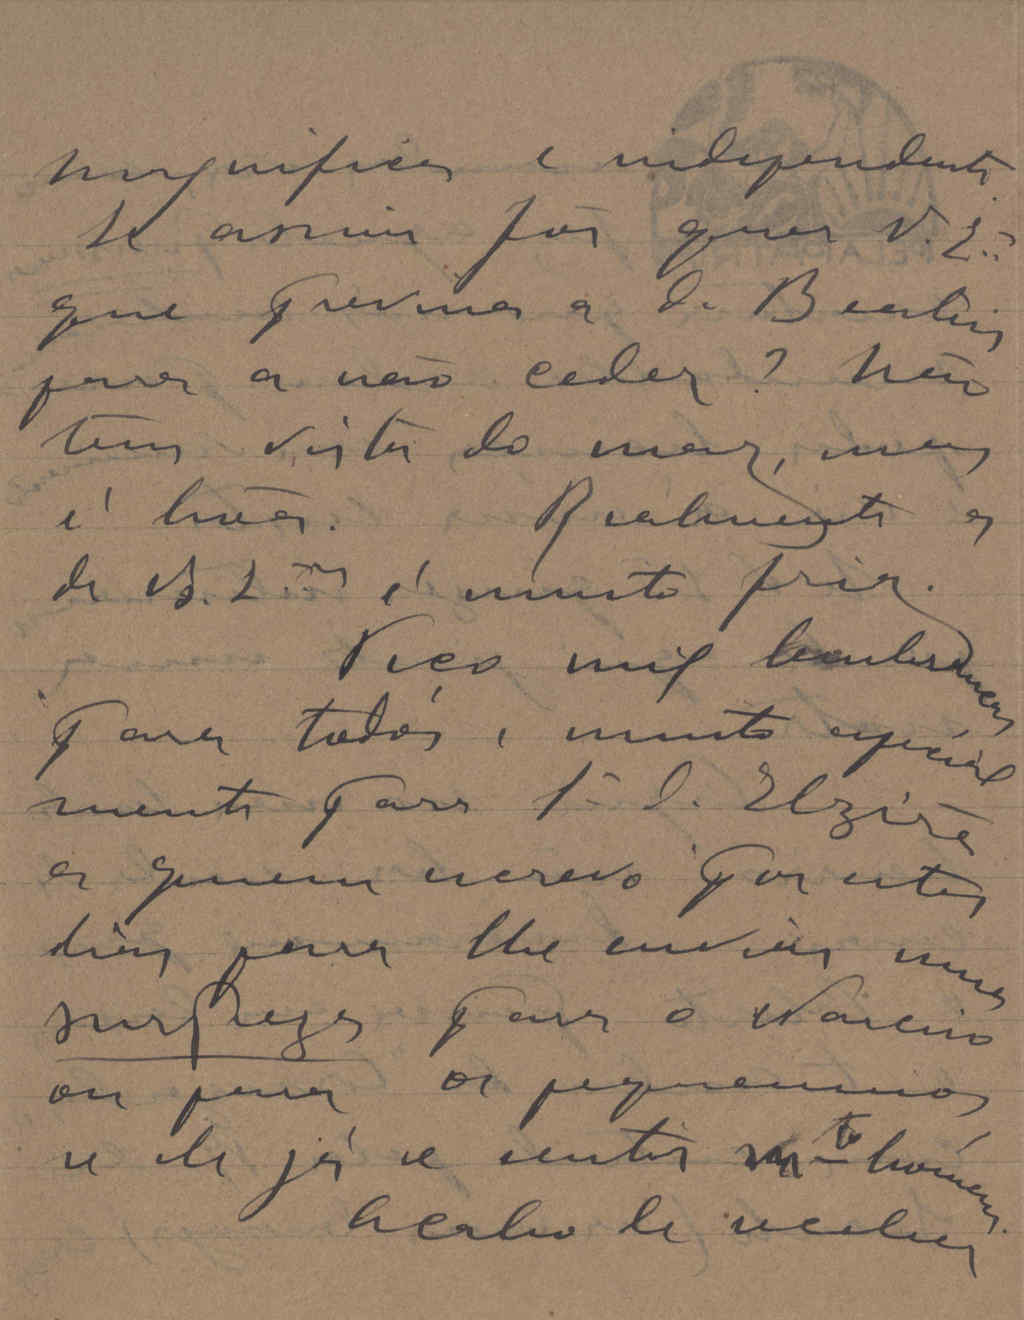 magnifica e independente.
Se assim fôr quer V. Ex.cia
que previna a D. Beatriz
para a não ceder? Não
tem vista do mar, mas
é bôa. Realmente a
de V. Ex.cia é muito fria.
Peço mil lembranças
para todos e muito especial
mente para a D. Elzira
a quem escrevo por estes
dias para lhe enviar uma
surpreza para o Narciso
ou para os pequeninos
se ele já se sentir mto homem.
Acabo de receber